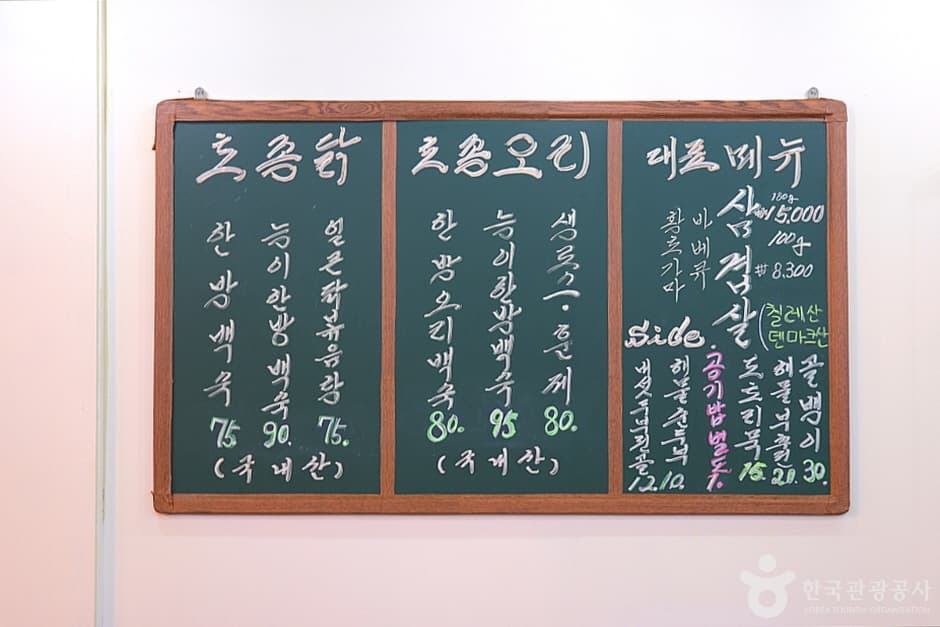 토종닭
한방백숙 75
능이한방백숙 90.
얼큰닭볶음탕 75.
(국내산)
토종오리
한방오리백숙 80.
능이한방백숙 95
생로스·훈제 80.
(국내산)
대표메뉴
황토가마
바베큐
삼겹살
180g
₩15,000
100g
₩8,300
(칠레산
덴마크산
Side.
버섯두부전골 12.
해물순두부 10.
·공기밥별도 1.
도토리묵 15.
해물부추전 20.
골뱅이 30.
한국관광공사
KOREA TOURISM ORGANIZATION